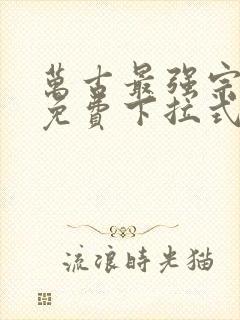 萬古最强宗
免費下拉式
流浪時光猫